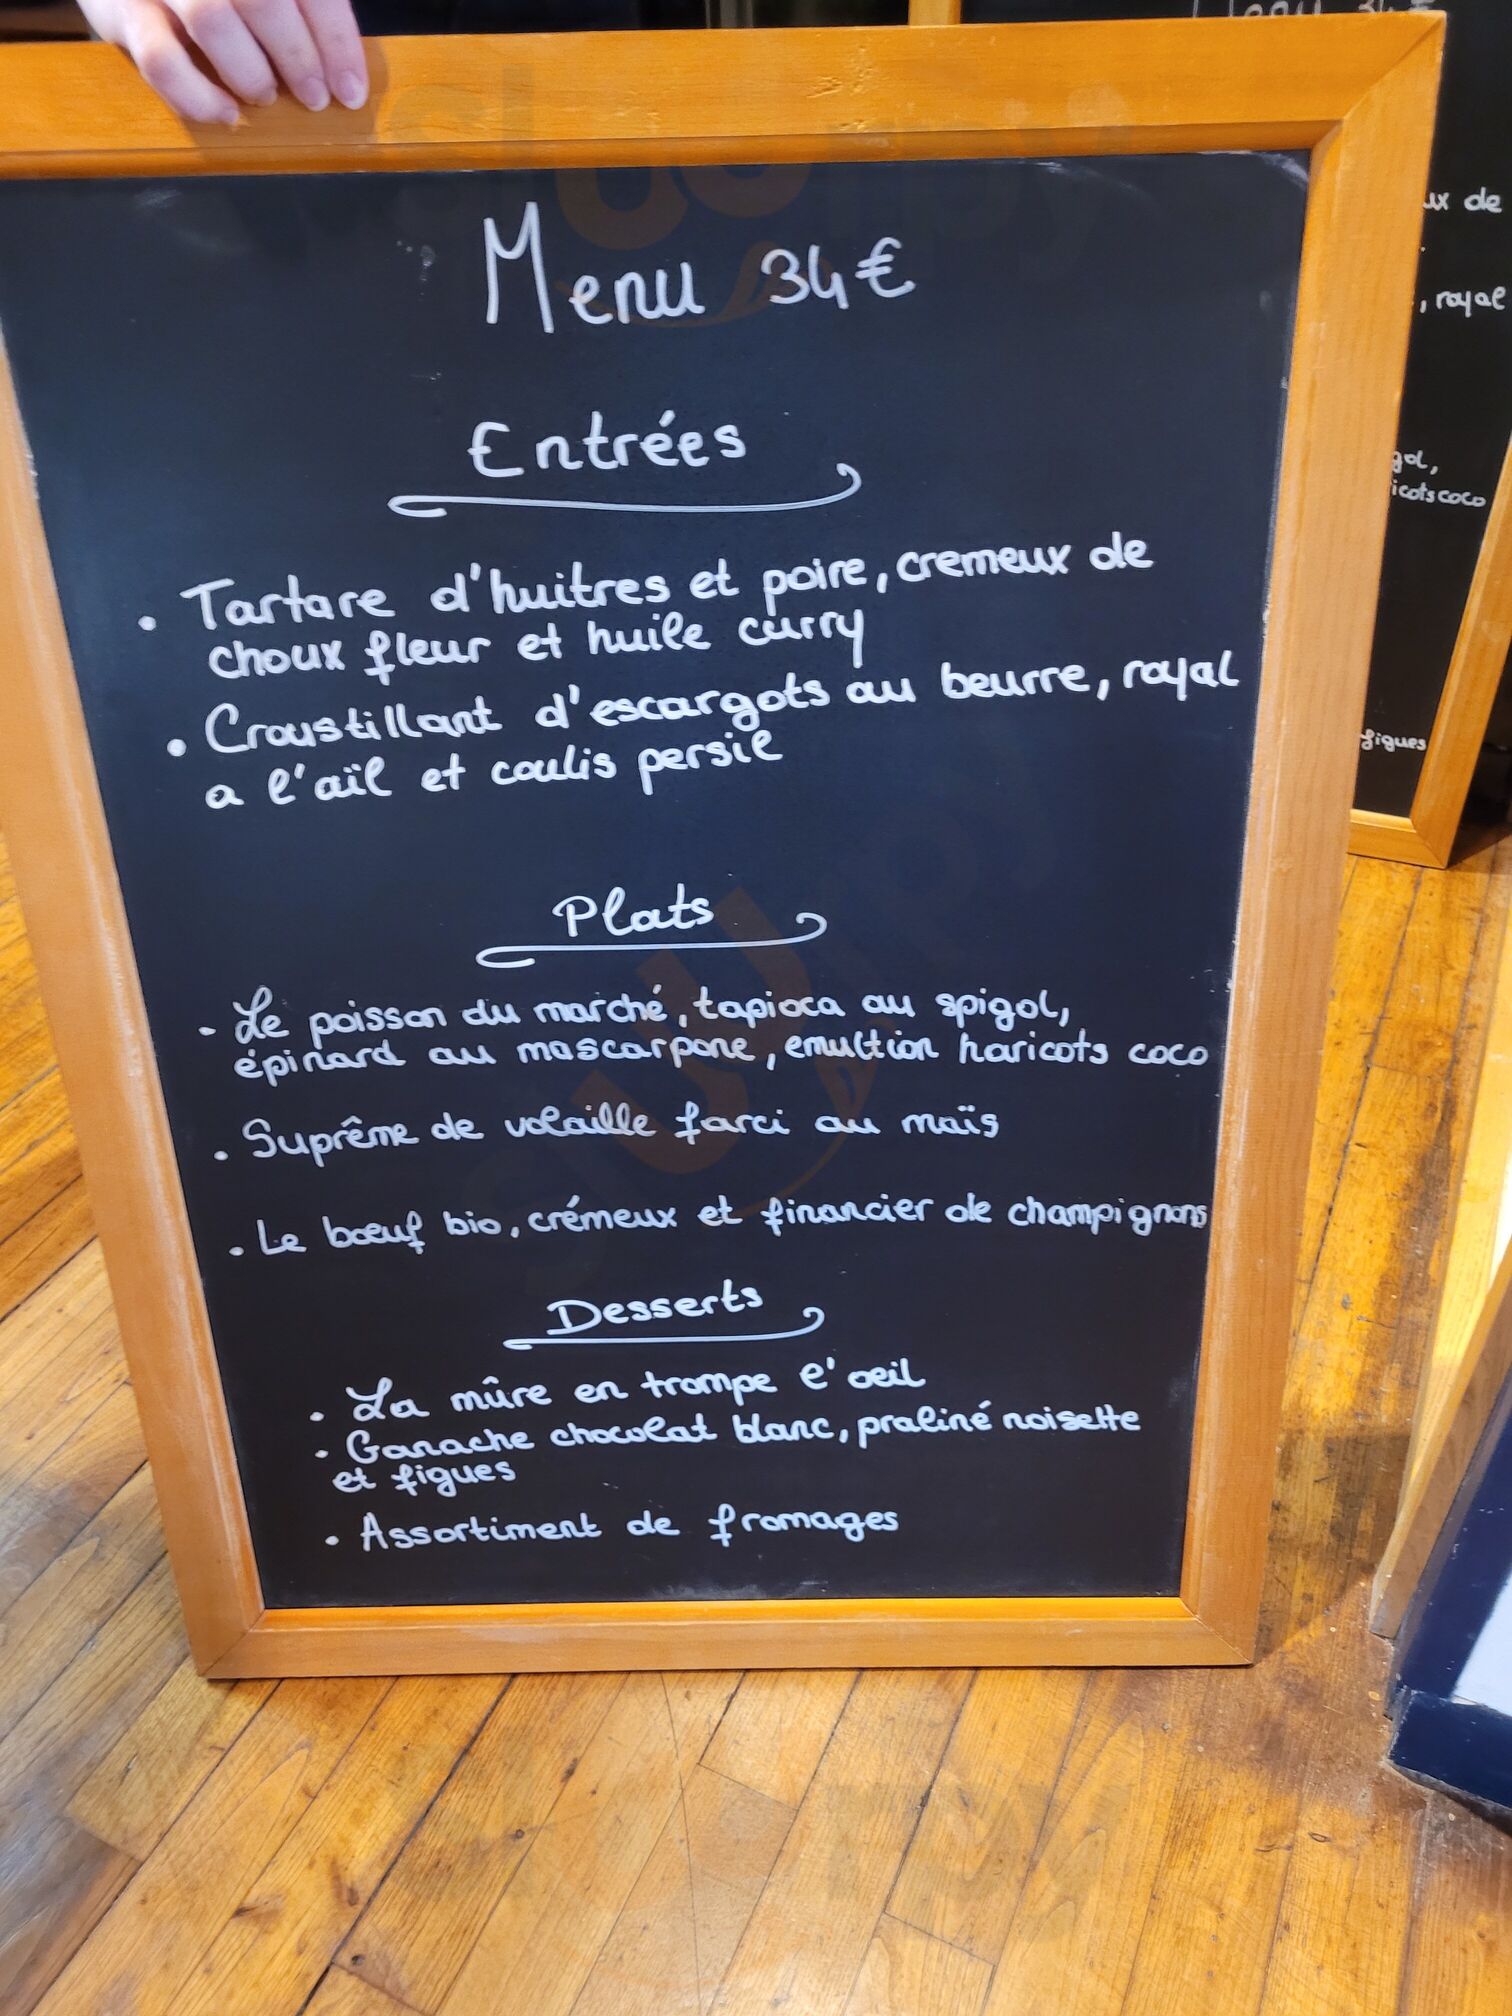 Menu 34€
Entrées
• Tartare d'huitres et poire, cremeux de
choux fleur et huile curry
• Croustillant d'escargots au beurre, royal
a l'aïl et coulis persil
Plats
• Le poisson du marché, tapioca au spigol,
épinard au mascarpone, emultion haricots coco
• Suprême de volaille farci au maïs
• Le bœuf bio, crémeux et financier de champignons
Desserts
• La mûre en trompe l'oeil
• Ganache chocolat blanc, praliné noisette
et figues
• Assortiment de fromages
Menu 34€
ux de
, royal
gol,
icots coco
figues